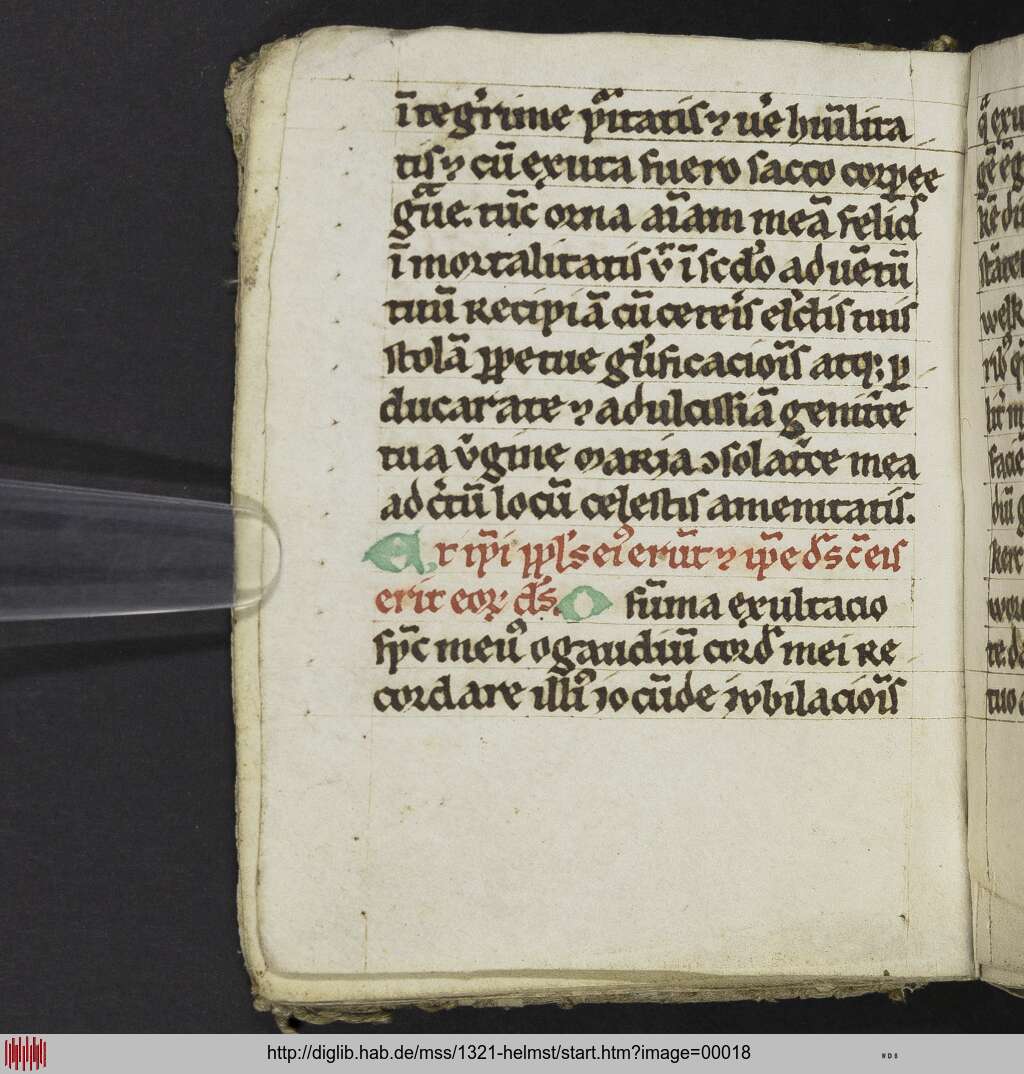 ītegͥrime pᵃͥritatis ⁊ ūe hūilita
tis ⁊ cū exuta fuero sacco corpee
gͣue. tūc orna aīam meā felicͥ
ī mortalitatis ⁊ ī scd̓o aduētū
tuū recipiā cū ceteris elc̄tis tuis
stolā ꝑpetue glīficacioīs atq; ꝑ
ducar a te ⁊ a dulcissīa genitͥce
tua v̓gine maria ꝯsolatͥce mea
ad c̓tū locū celestis amenitatis.
Et ip̄i ppl̓s ei᷒ erūt ⁊ ip̄e d̄s c̄ eis
erit eoꝝ d̄s. O sūma exultacio
sp̄c meu᷒ o gaudiū cord̓ mei re
cordare illi᷒ iocūde iubilacioīs
http://diglib.hab.de/mss/1321-helmst/start.htm?image=00018